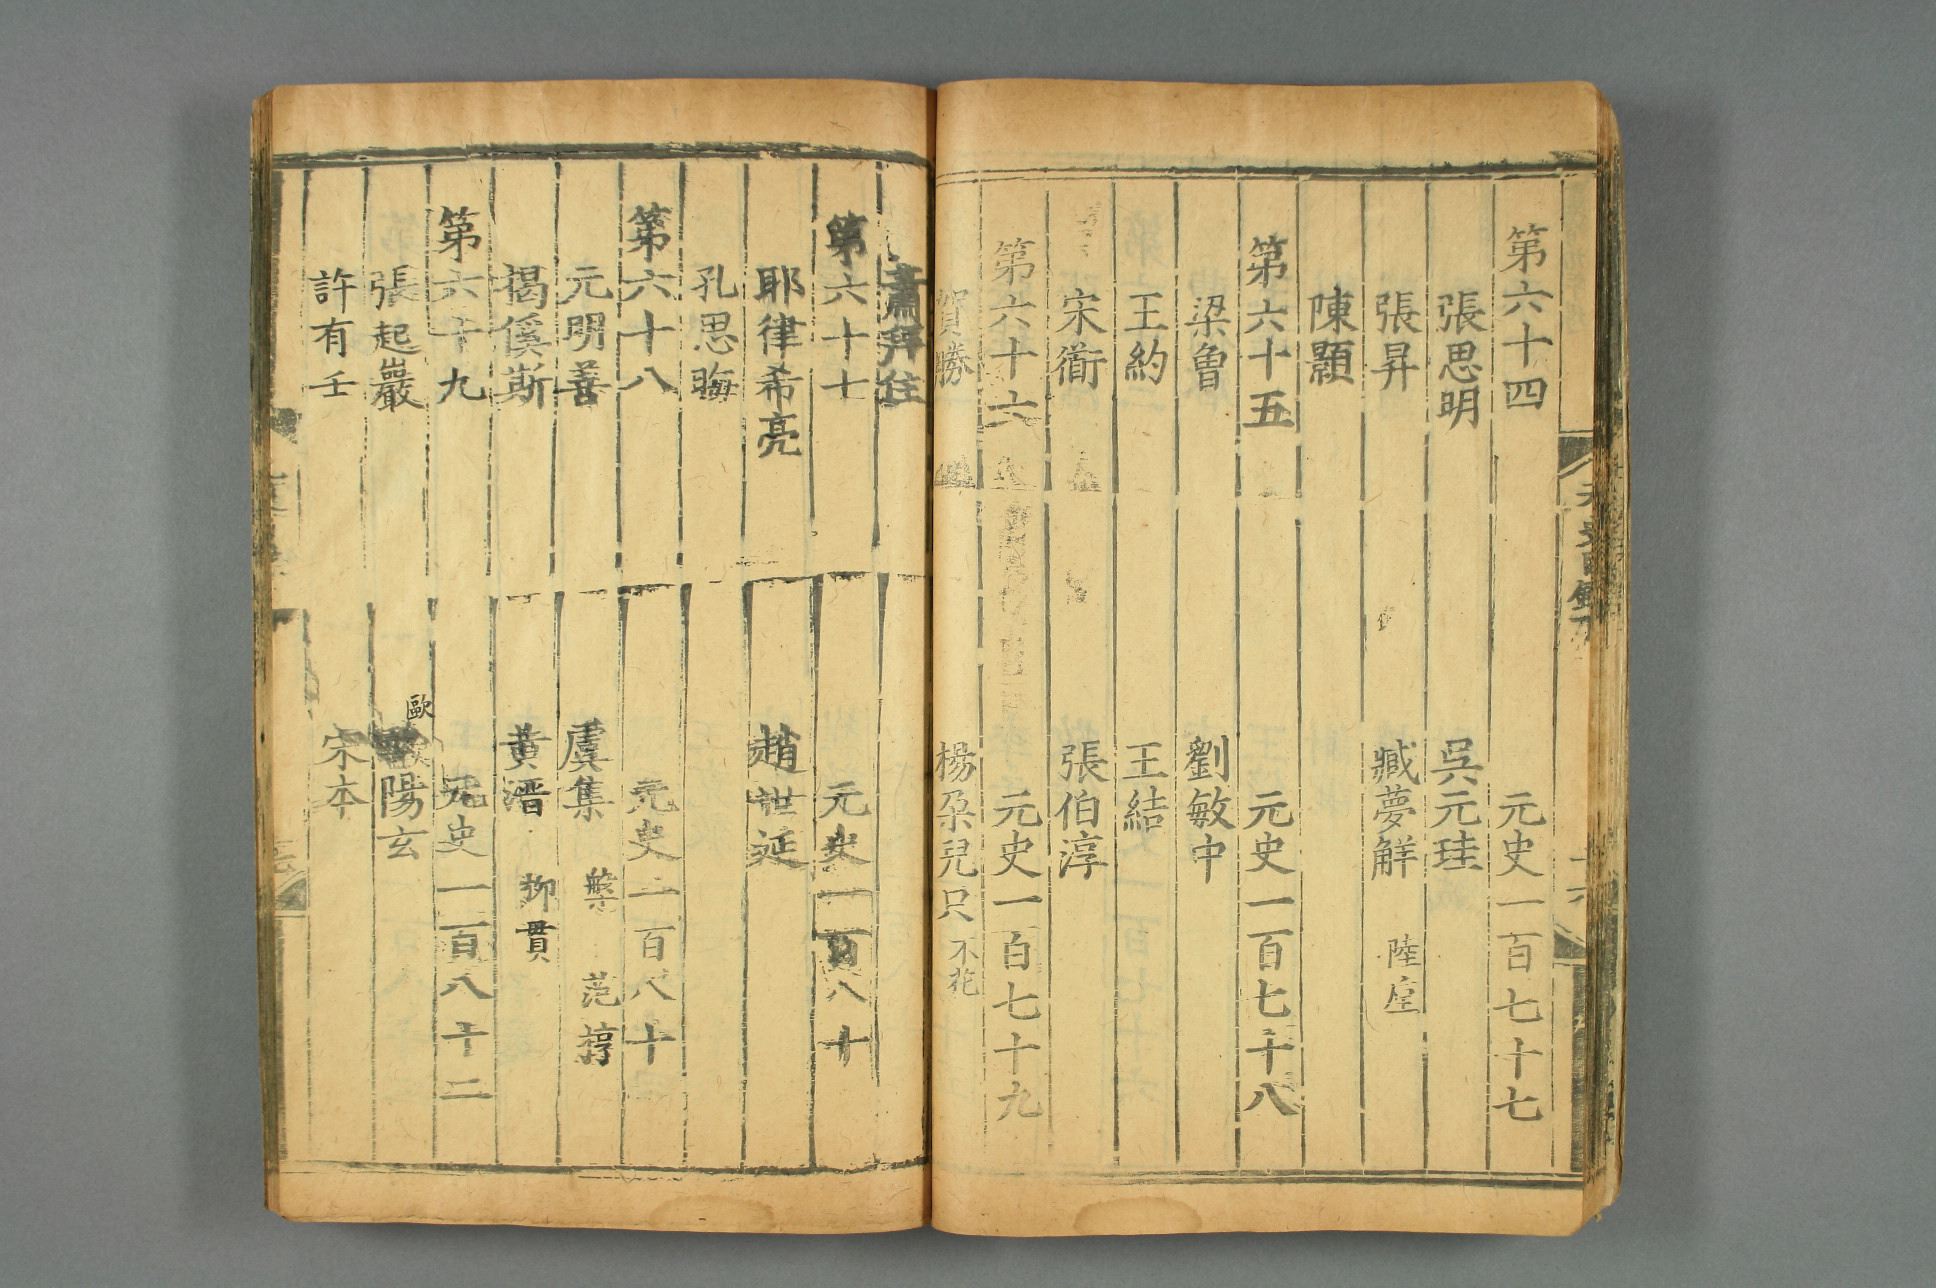 第六十四 元史一百七十七
張思明 吳元珪
張昇 臧夢解 陸垕
陳顥
第六十五 元史一百七十八
梁曾 劉敏中
王約 王結
宋衜 張伯淳
第六十六 元史一百七十九
賀勝 楊朶兒只 不花
蕭拜住
第六十七 元史一百八十
耶律希亮 趙世延
孔思晦
第六十八 元史一百八十一
元明善 虞集 槃 范梈
揭傒斯 黃溍 柳貫
第六十九 元史一百八十二
張起巖 歐陽玄
許有壬 宋本
元史目錄下